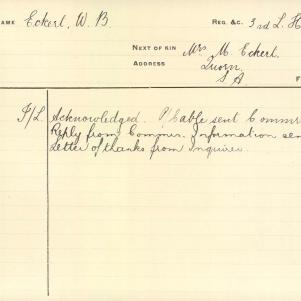 NAME Eckert, W. B. REG. &C. 3rd L. H
NEXT OF KIN Mrs. M. Eckert.
ADDRESS Quorn.
S A
F
I/L Acknowledged. P/Cable sent Commr
Reply from Commr. Information sen
Letter of thanks from Inquirer.